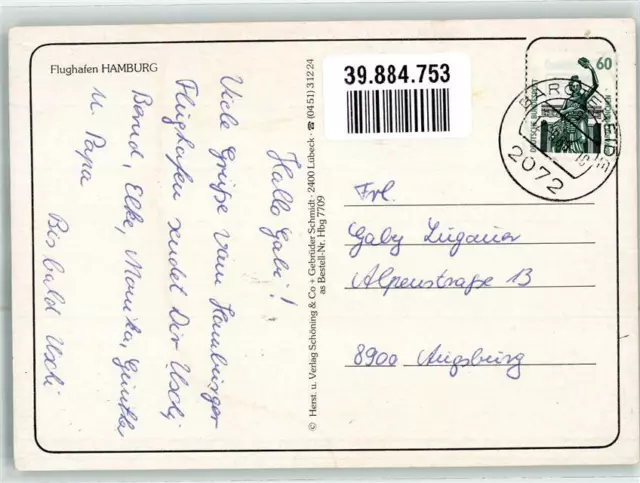 Flughafen HAMBURG
39.884.753
60
DEUTSCHE BUNDESPOST
BARGTEHEIDE
2072
Hallo Gabi!
Viele Grüße vom Hamburger
Flughafen sendet Dir Uschi,
Bernd, Elke, Monika, Günther
u. Papa
Bis bald Uschi
© Herst. u. Verlag Schöning & Co + Gebrüder Schmidt · 2400 Lübeck · ☎ (0451) 31224
as Bestell-Nr. Hbg 7709
Frl.
Gaby Lugauer
Alpenstraße 13
8900 Augsburg